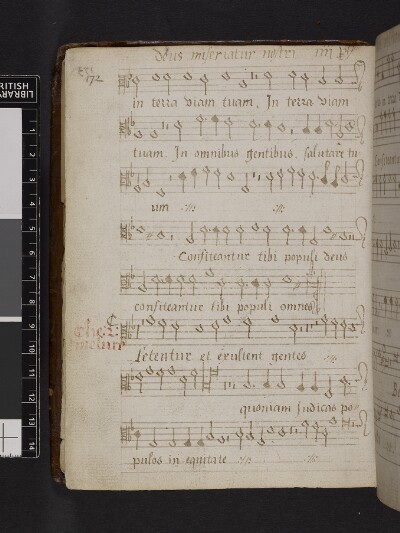 Deus miseriatur nostri iiii
172
in terra viam tuam, In terra viam
tuam. In omnibus gentibus, salutare tu-
um
Confiteantur tibi populi deus
confiteantur tibi populi omnes
Letentur et exultent gentes
quoniam Iudicas po-
pulos in equitate
BRITISH
LIBRARY
1
2
3
4
5
6
7
8
9
10
11
12
13
14